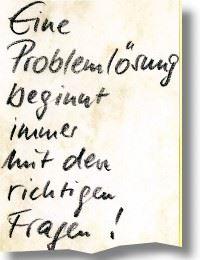 Eine
Problemlösung
beginnt
immer
mit den
richtigen
Fragen!